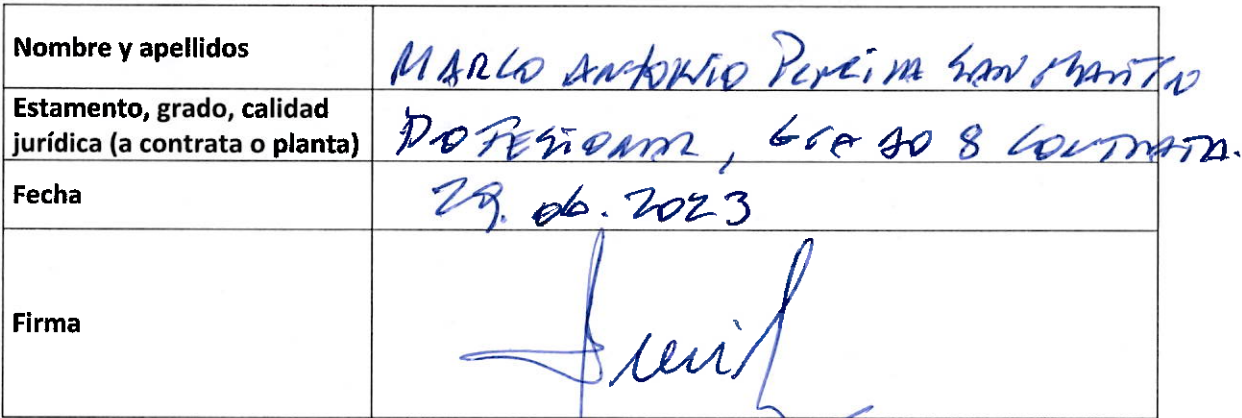 Nombre y apellidos
MARCO ANTONIO Pereira SAN MARTIN
Estamento, grado, calidad
jurídica (a contrata o planta)
PROFESIONAL, GRADO 8 CONTRATA.
Fecha
29.06.2023
Firma